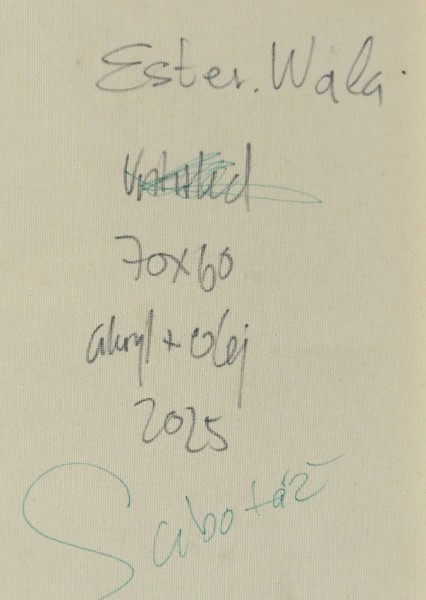 Ester. Wala.
Untitled
70x60
akryl + olej
2025
Sabotáž